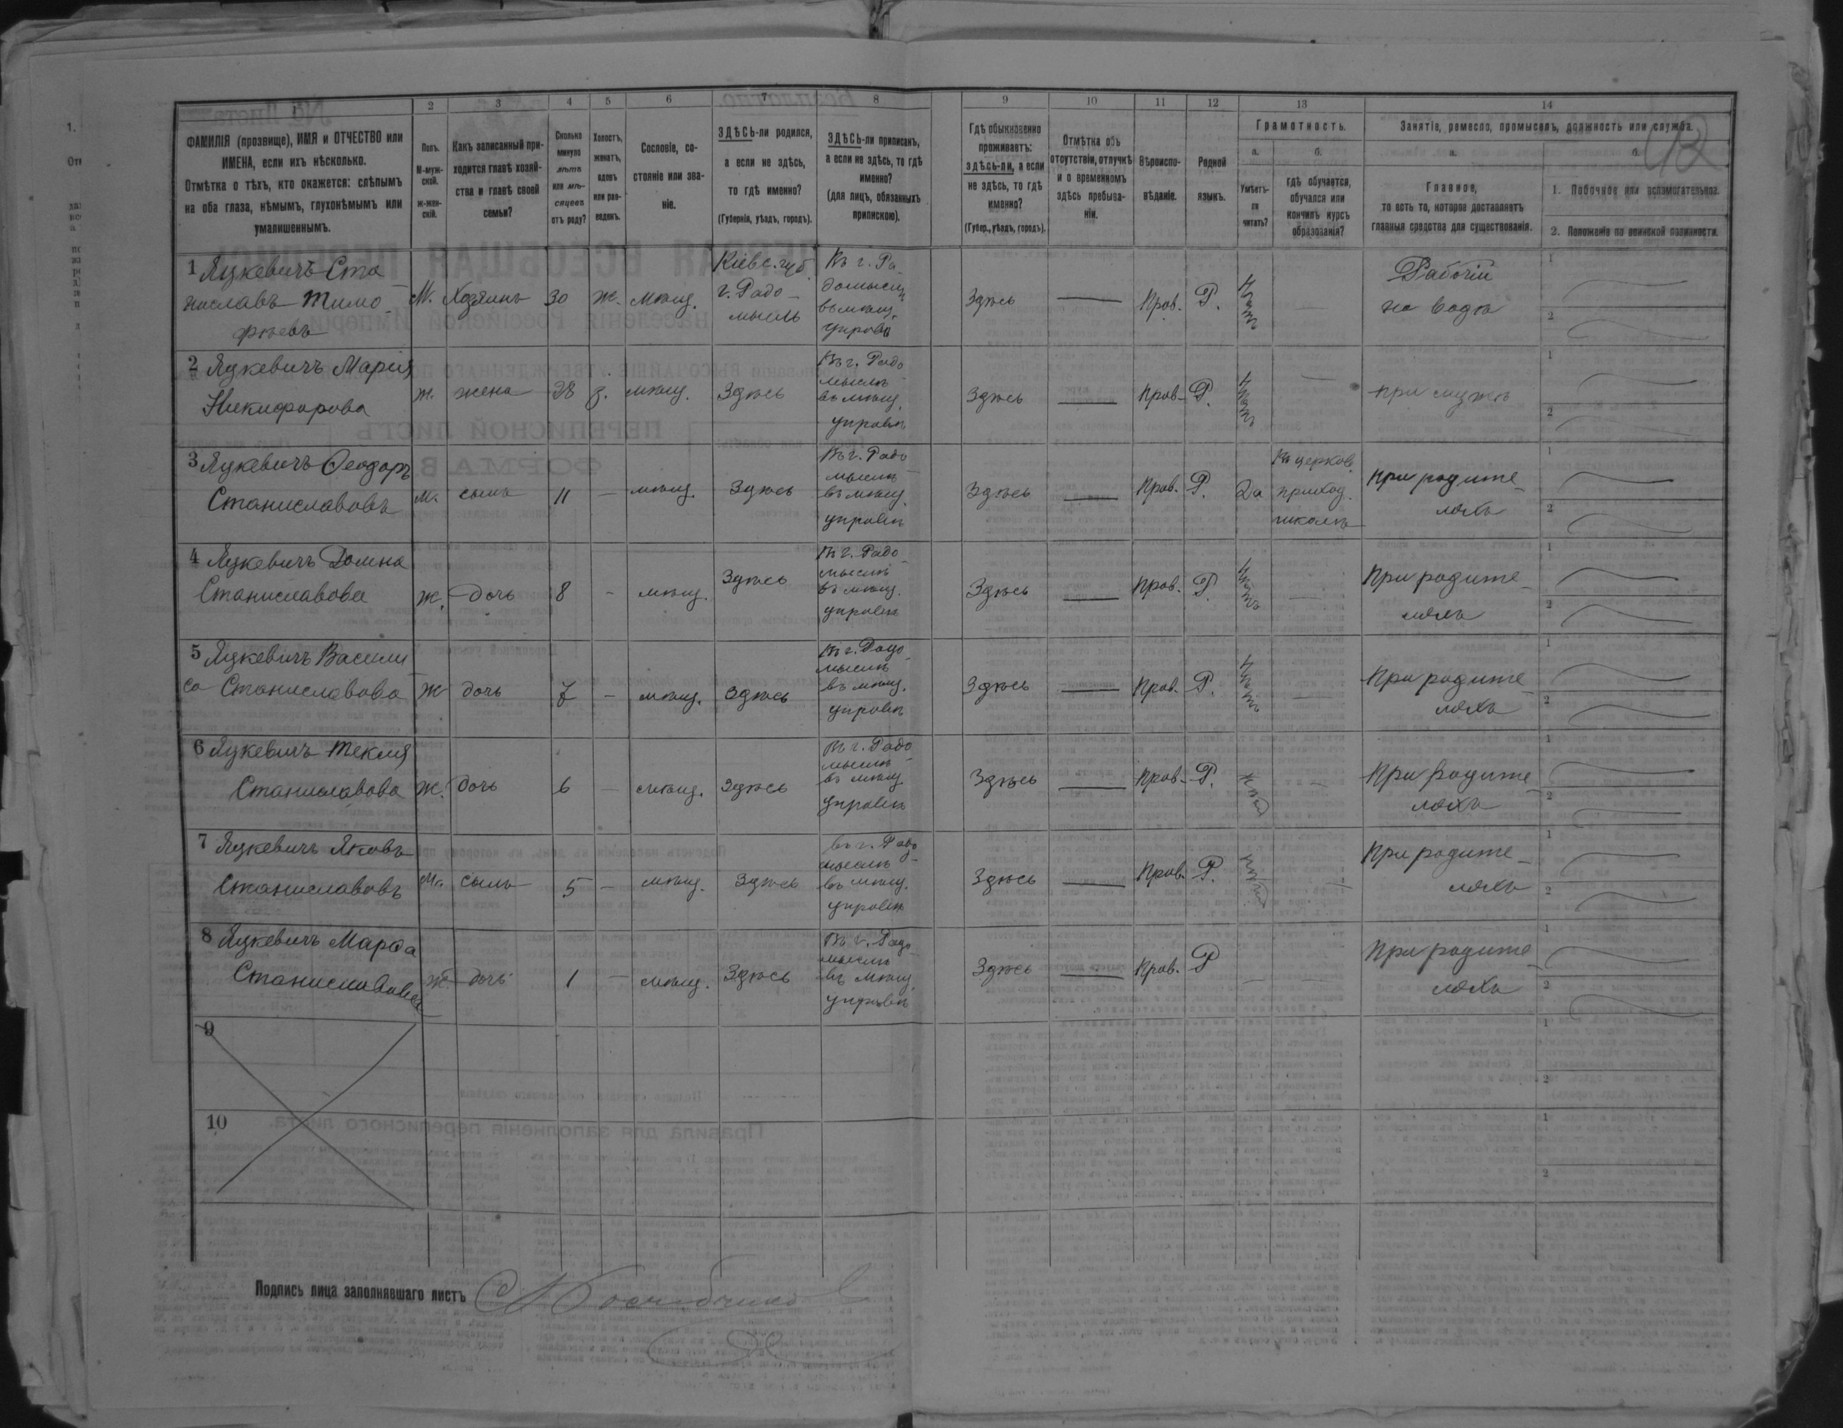 1 2 3 4 5 6 7 8 9 10 11 12 13 14
ФАМИЛІЯ (прозвище), ИМЯ и ОТЧЕСТВО или
ИМЕНА, если ихъ нѣсколько.
Отмѣтка о тѣхъ, кто окажется: слѣпымъ
на оба глаза, нѣмымъ, глухонѣмымъ или
умалишеннымъ.
Полъ.
М-муж-
ской.
ж-жен-
скій.
Какъ записанный при-
ходится главѣ хозяй-
ства и главѣ своей
семьи?
Сколько
минуло
лѣтъ
или мѣ-
сяцевъ
отъ роду?
Холостъ,
женатъ,
вдовъ
или раз-
веденъ.
Сословіе, со-
стояніе или зва-
ніе.
ЗДѢСЬ-ли родился,
а если не здѣсь,
то гдѣ именно?
(Губернія, уѣздъ, городъ).
ЗДѢСЬ-ли приписанъ,
а если не здѣсь, то гдѣ
именно?
(для лицъ, обязанныхъ
припискою).
Гдѣ обыкновенно
проживаетъ:
здѣсь-ли, а если
не здѣсь, то гдѣ
именно?
(Губер., уѣздъ, городъ).
Отмѣтка объ
отсутствіи, отлучкѣ
и о временномъ
здѣсь пребыва-
ніи.
Вѣроиспо-
вѣданіе.
Родной
языкъ.
Грамотность.
а.
Умѣетъ-
ли
читать?
б.
гдѣ обучается,
обучался или
кончилъ курсъ
образованія?
Занятіе, ремесло, промыселъ, должность или служба.
а.
Главное,
то есть то, которое доставляетъ
главныя средства для существованія.
б.
1. Побочное или вспомогательное.
2. Положеніе по воинской повинности.
1 Яцкевичъ Ста
ниславъ Тимо-
фѣевъ
М. Хозяинъ 30 ж. мѣщ.
Кіевс. губ.
г. Радо-
мысль
Въ г. Ра
домысл
въ мѣщ.
управѣ
Здѣсь Прав. Р.
Рабочій
2 Яцкевичъ Марія
Никифорова
ж. жена 28 з. мѣщ. Здѣсь
Въ г. Радо
мыслѣ
въ мѣщ.
управѣ
Здѣсь Прав. Р.
при мужѣ
3 Яцкевичъ Ѳеодоръ
Станиславовъ
м. сынъ 11 мѣщ. Здѣсь
Въ г. Радо
мыслѣ
въ мѣщ.
управѣ
Здѣсь Прав. Р. Да
Въ церков.
приход.
школѣ
При родите-
ляхъ
4 Яцкевичъ Домна
Станиславова
ж. дочь 8 мѣщ. Здѣсь
Въ г. Радо
мыслѣ
въ мѣщ.
управѣ
Здѣсь Прав. Р.
При родите-
ляхъ
5 Яцкевичъ Васили
са Станиславова
ж дочь 7 мѣщ. Здѣсь
Въ г. Радо
мыслѣ
въ мѣщ.
управѣ
Здѣсь Прав. Р.
При родите
ляхъ
6 Яцкевичъ Текля
Станиславова
ж. дочь 6 мѣщ. Здѣсь
Въ г. Радо
мыслѣ
въ мѣщ
управѣ
Здѣсь Прав. Р.
При родите
ляхъ
7 Яцкевичъ Яковъ
Станиславовъ
м. сынъ 5 мѣщ. Здѣсь
въ г. Радо
мыслѣ
въ мѣщ.
управѣ
Здѣсь Прав. Р.
При родите-
ляхъ
8 Яцкевичъ Марѳа
Станиславова
ж. дочь 1 мѣщ. Здѣсь
Въ г. Радо
мыслѣ
въ мѣщ.
управѣ
Здѣсь Прав. Р
При родите
ляхъ
9
10
Подпись лица заполнявшаго листъ